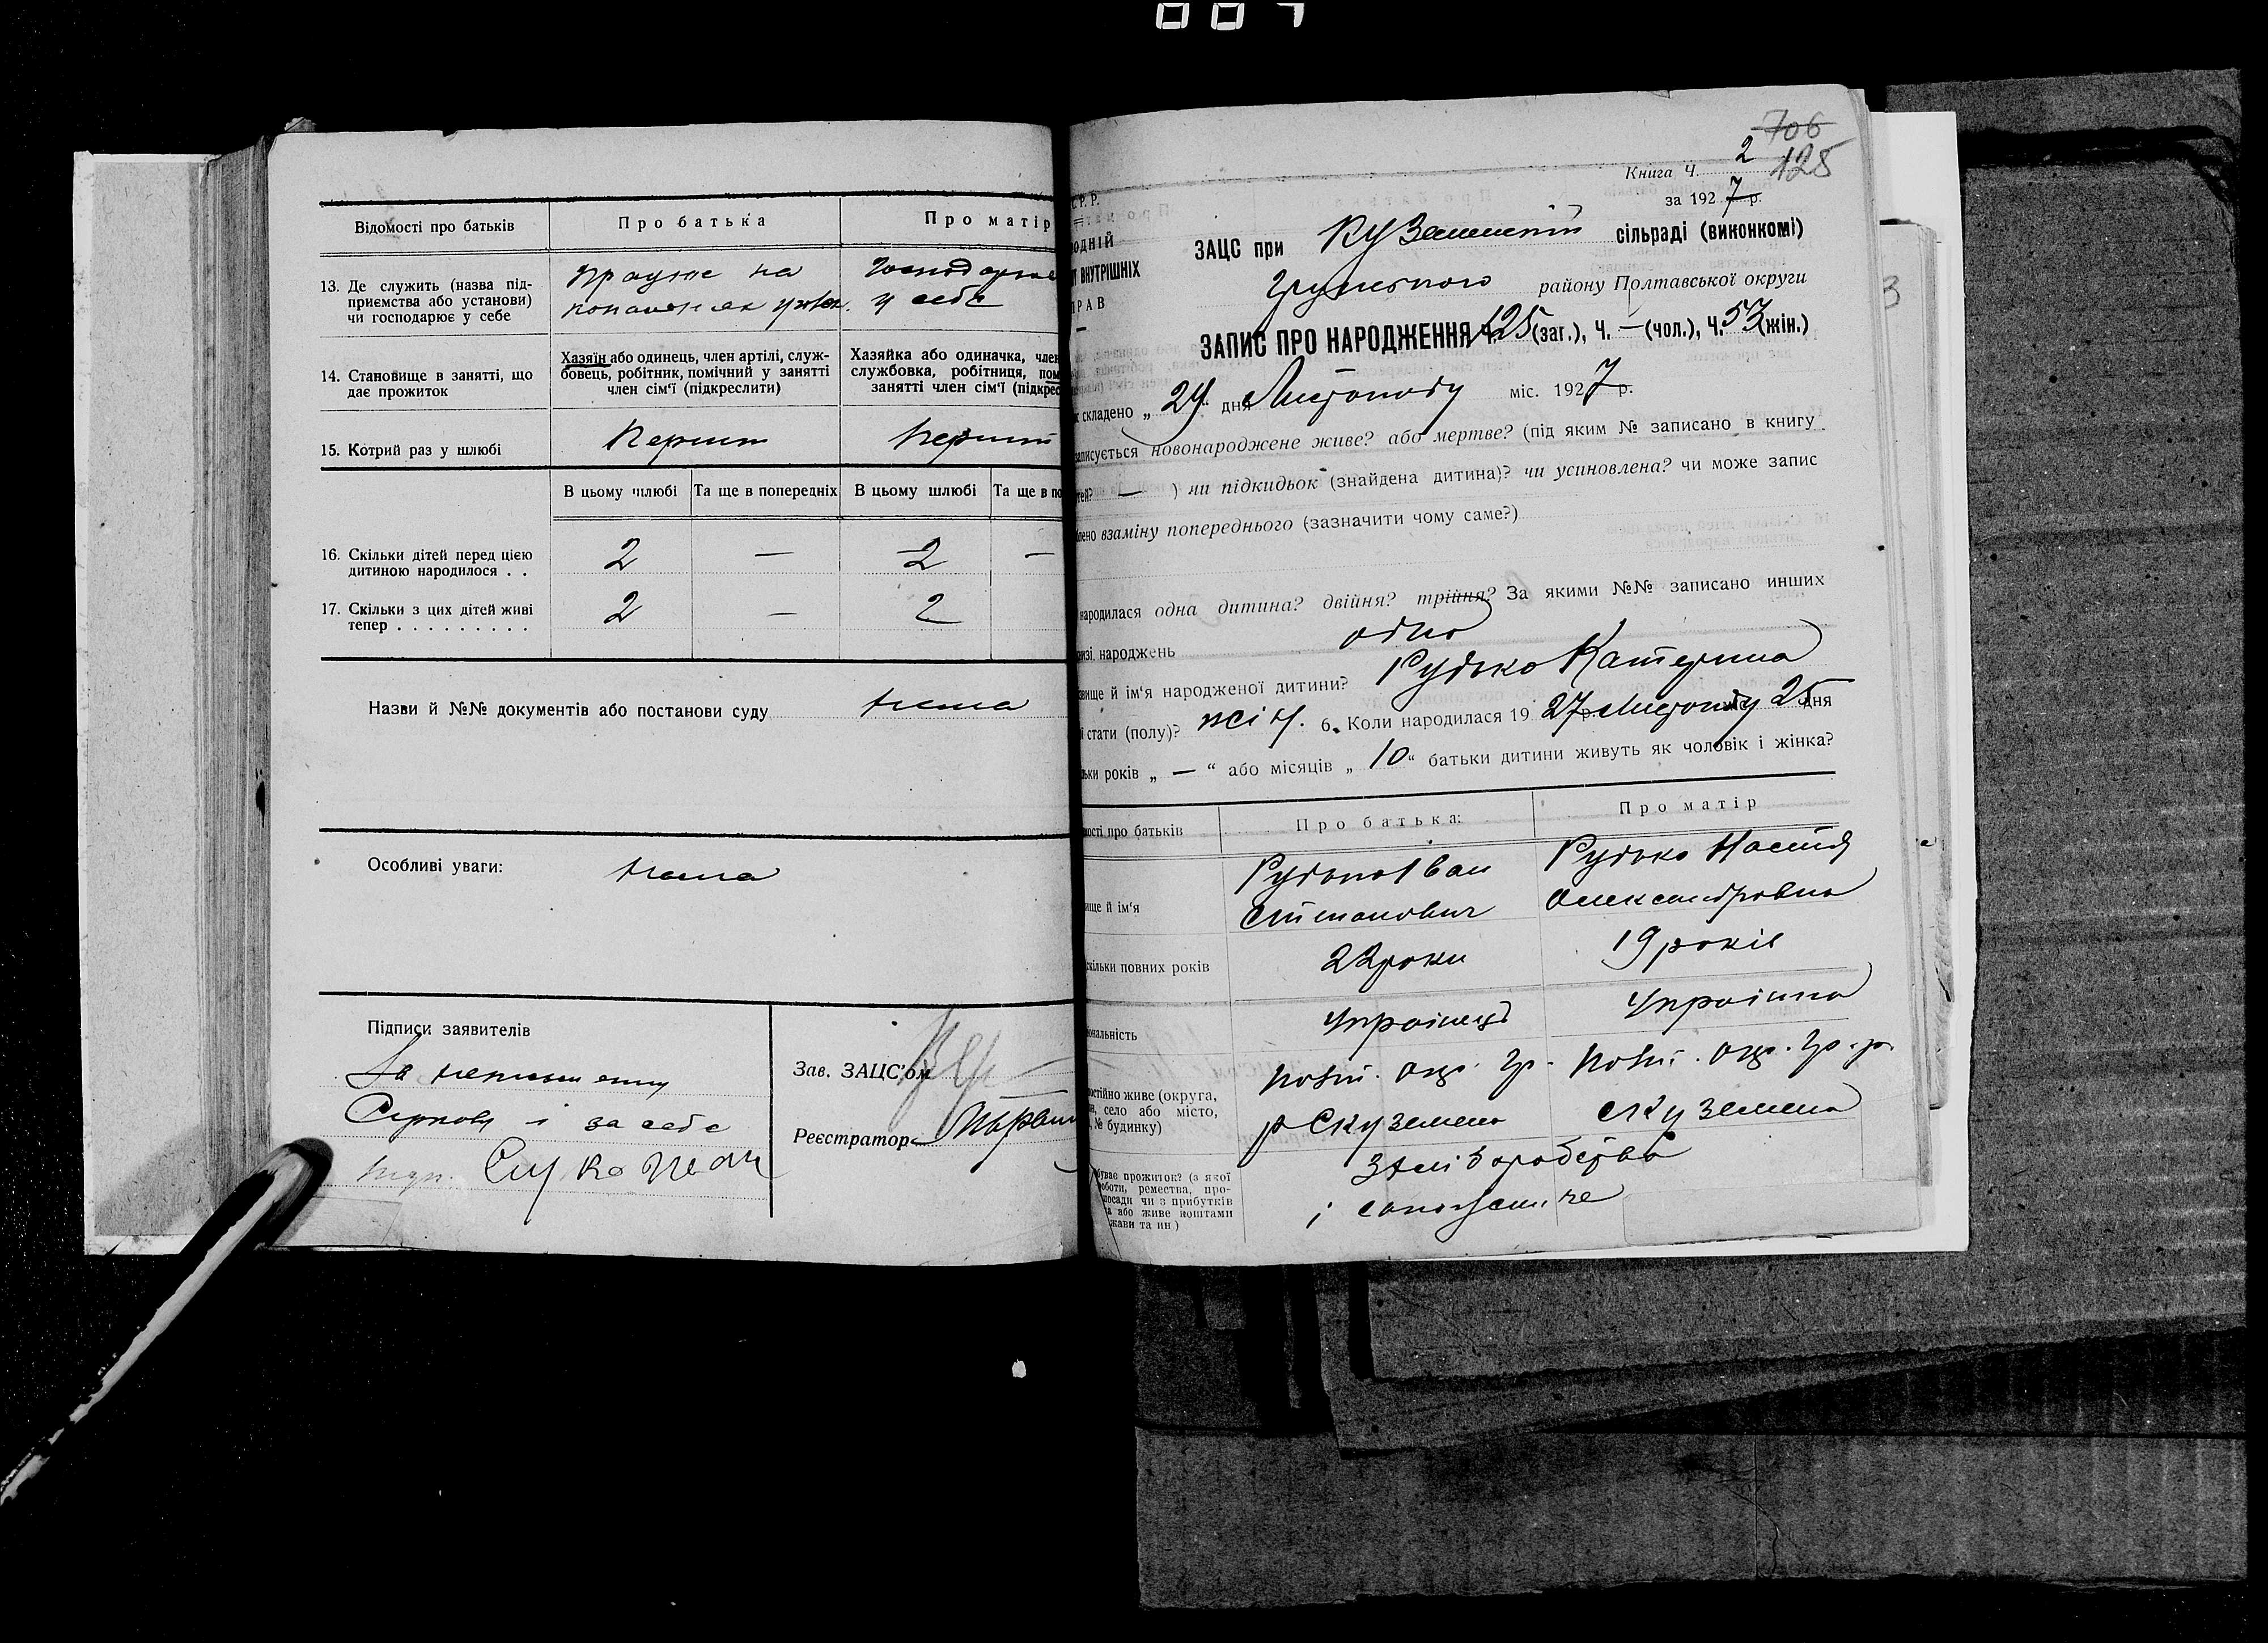 Відомості про батьків
Про батька
Про матір
13. Де служить (назва під-
приємства або установи)
чи господарює у себе
працює на
Господарює
у себе
14. Становище в занятті, що
дає прожиток
Хазяїн або одинець, член артілі, служ-
бовець, робітник, помічний у занятті
член сім'ї (підкреслити)
Хазяйка або одиначка, член
службовка, робітниця, пом
занятті член сім'ї (підкрес
15. Котрий раз у шлюбі
Перший
Перший
В цьому шлюбі
Та ще в попередніх
В цьому шлюбі
Та ще в по
16. Скільки дітей перед цією
дитиною народилося . .
2 — 2 —
17. Скільки з цих дітей живі
тепер . . . . . . . . .
2 — 2
Назви й №№ документів або постанови суду нема
Особливі уваги: нема
Підписи заявителів
За неписьменну
і за себе
Зав. ЗАЦС'ом
Реєстратор
706
125
Книга Ч. 2
за 1927 р.
С.Р.Р.
ОДНІЙ
Т ВНУТРІШНІХ
ПРАВ
ЗАЦС при Куземенській сільраді (виконкомі)
Грунського району Полтавської округи
ЗАПИС ПРО НАРОДЖЕННЯ Ч. 125 (заг.), Ч. — (чол.), Ч. 53 (жін.)
складено „ 29 “ дня Листопаду міс. 1927 р.
записується новонароджене живе? або мертве? (під яким № записано в книгу
тей? — ) чи підкидьок (знайдена дитина)? чи усиновлена? чи може запис
лено взаміну попереднього (зазначити чому саме?)
народилася одна дитина? двійня? трійня? За якими №№ записано инших
изі народжень одно
звище й ім'я народженої дитини? Рудько Катерина
ї стати (полу)? жін. 6. Коли народилася 1927 р. Листопаду 25 дня
льки років „ — “ або місяців „ 10 “ батьки дитини живуть як чоловік і жінка?
ості про батьків
Про батька:
Про матір
ище й ім'я
Рудько Іван
Степанович
Рудько Настя
Олександровна
скільки повних років
22 роки
19 років
іональність
Українець
Українка
остійно живе (округа,
н, село або місто,
№ будинку)
Полт. Окр. Гр.
р С Куземено
Полт. Окр. Гр. р.
с Куземено
буває прожиток? (з якої
роботи, ремества, про-
посади чи з прибутків
а або живе коштами
жави та ин)
Хліборобства
і